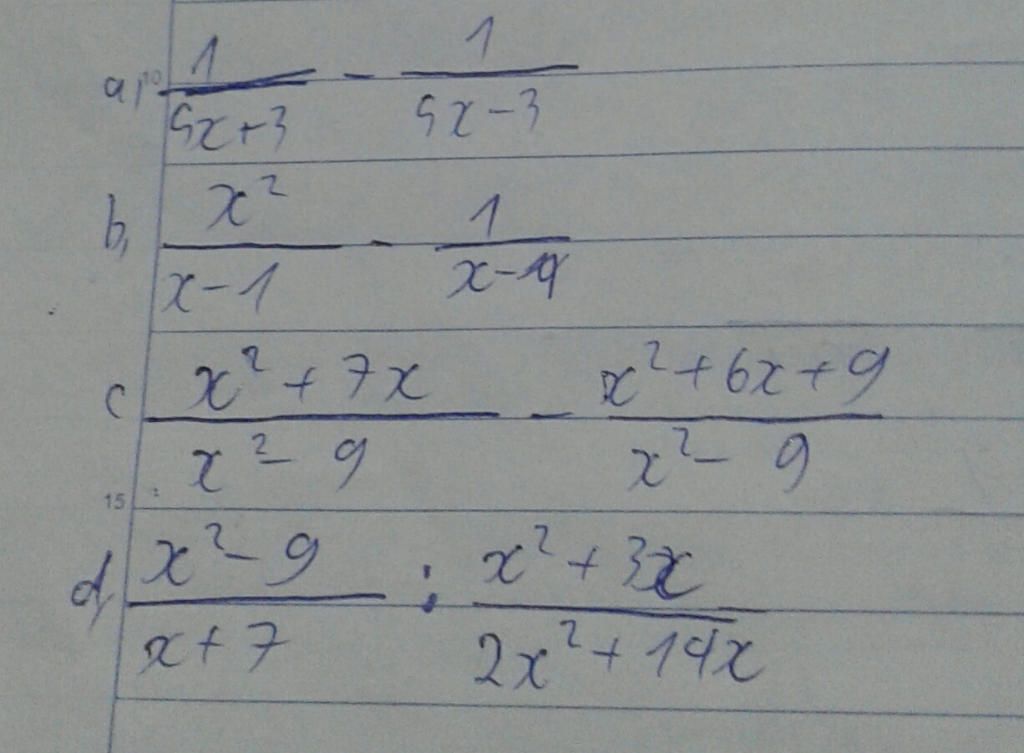 a, 10 1/(5x+3) - 1/(5x-3)
b, x²/(x-1) - 1/(x-1)
c (x²+7x)/(x²-9) - (x²+6x+9)/(x²-9)
15
d, (x²-9)/(x+7) : (x²+3x)/(2x²+14x)